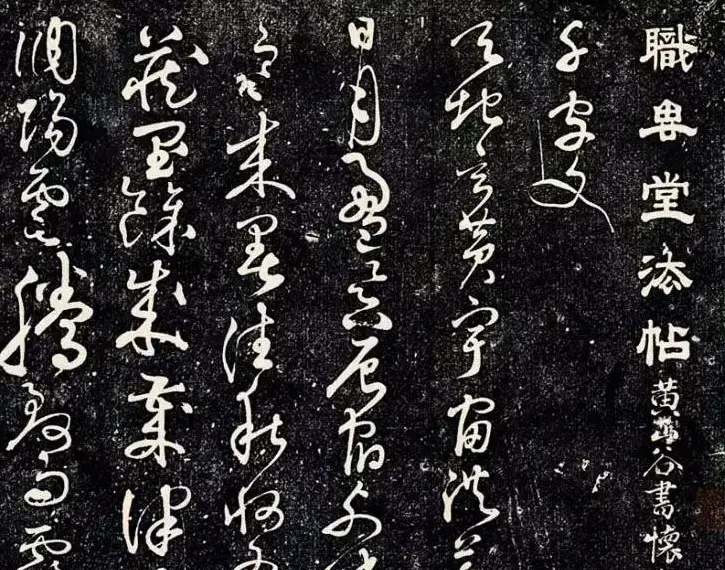 職思堂法帖 黃山谷書懷
千字文
天地玄黃宇宙洪荒
日月盈昃辰宿列張
寒來暑往秋收冬
藏閏餘成歲律
調陽雲騰致雨露